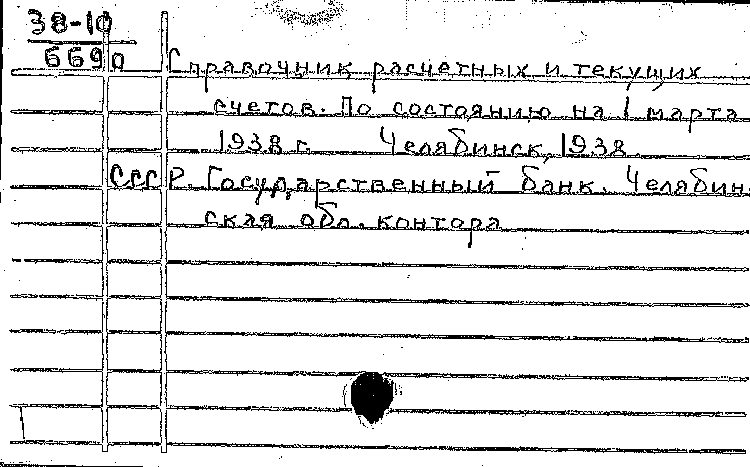 38-10
669о
Справочник расчетных и текущих
счетов. По состоянию на 1 марта
1938 г. Челябинск, 1938
СССР. Государственный банк. Челябин-
ская обл. контора